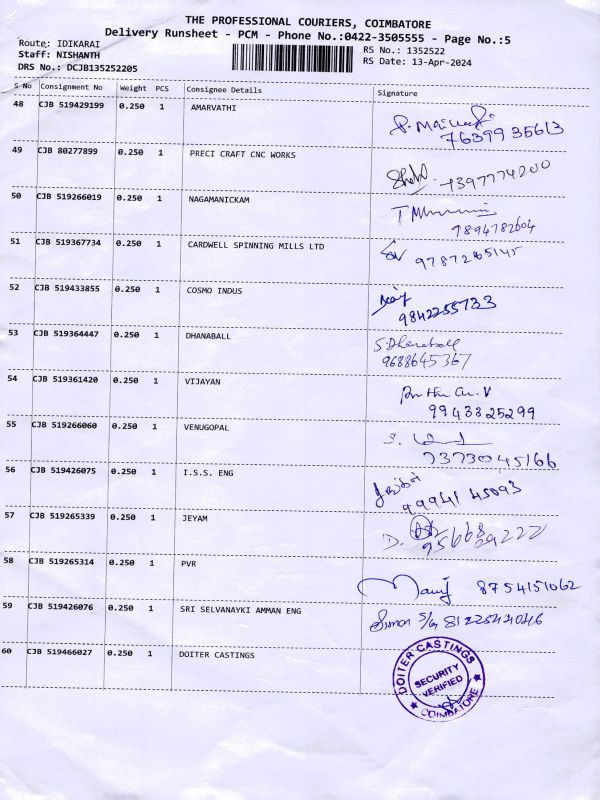 THE PROFESSIONAL COURIERS, COIMBATORE
Delivery Runsheet - PCM - Phone No.:0422-3505555 - Page No.:5
Route: IDIKARAI
Staff: NISHANTH
DRS No.: DCJB135252205
RS No.: 1352522
RS Date: 13-Apr-2024
S No Consignment No Weight PCS Consignee Details Signature
48 CJB 519429199 0.250 1 AMARVATHI
7639935613
49 CJB 80277899 0.250 1 PRECI CRAFT CNC WORKS
50 CJB 519266019 0.250 1 NAGAMANICKAM
9894782604
51 CJB 519367734 0.250 1 CARDWELL SPINNING MILLS LTD
9787265145
52 CJB 519433855 0.250 1 COSMO INDUS
9842255733
53 CJB 519364447 0.250 1 DHANABALL S.Dhanaball
9688645367
54 CJB 519361420 0.250 1 VIJAYAN
9943825299
55 CJB 519266060 0.250 1 VENUGOPAL
7373045166
56 CJB 519426075 0.250 1 I.S.S. ENG
99941 45093
57 CJB 519265339 0.250 1 JEYAM D.
58 CJB 519265314 0.250 1 PVR
8754151062
59 CJB 519426076 0.250 1 SRI SELVANAYKI AMMAN ENG
60 CJB 519466027 0.250 1 DOITER CASTINGS
DOITER CASTINGS
SECURITY
VERIFIED
COIMBATORE